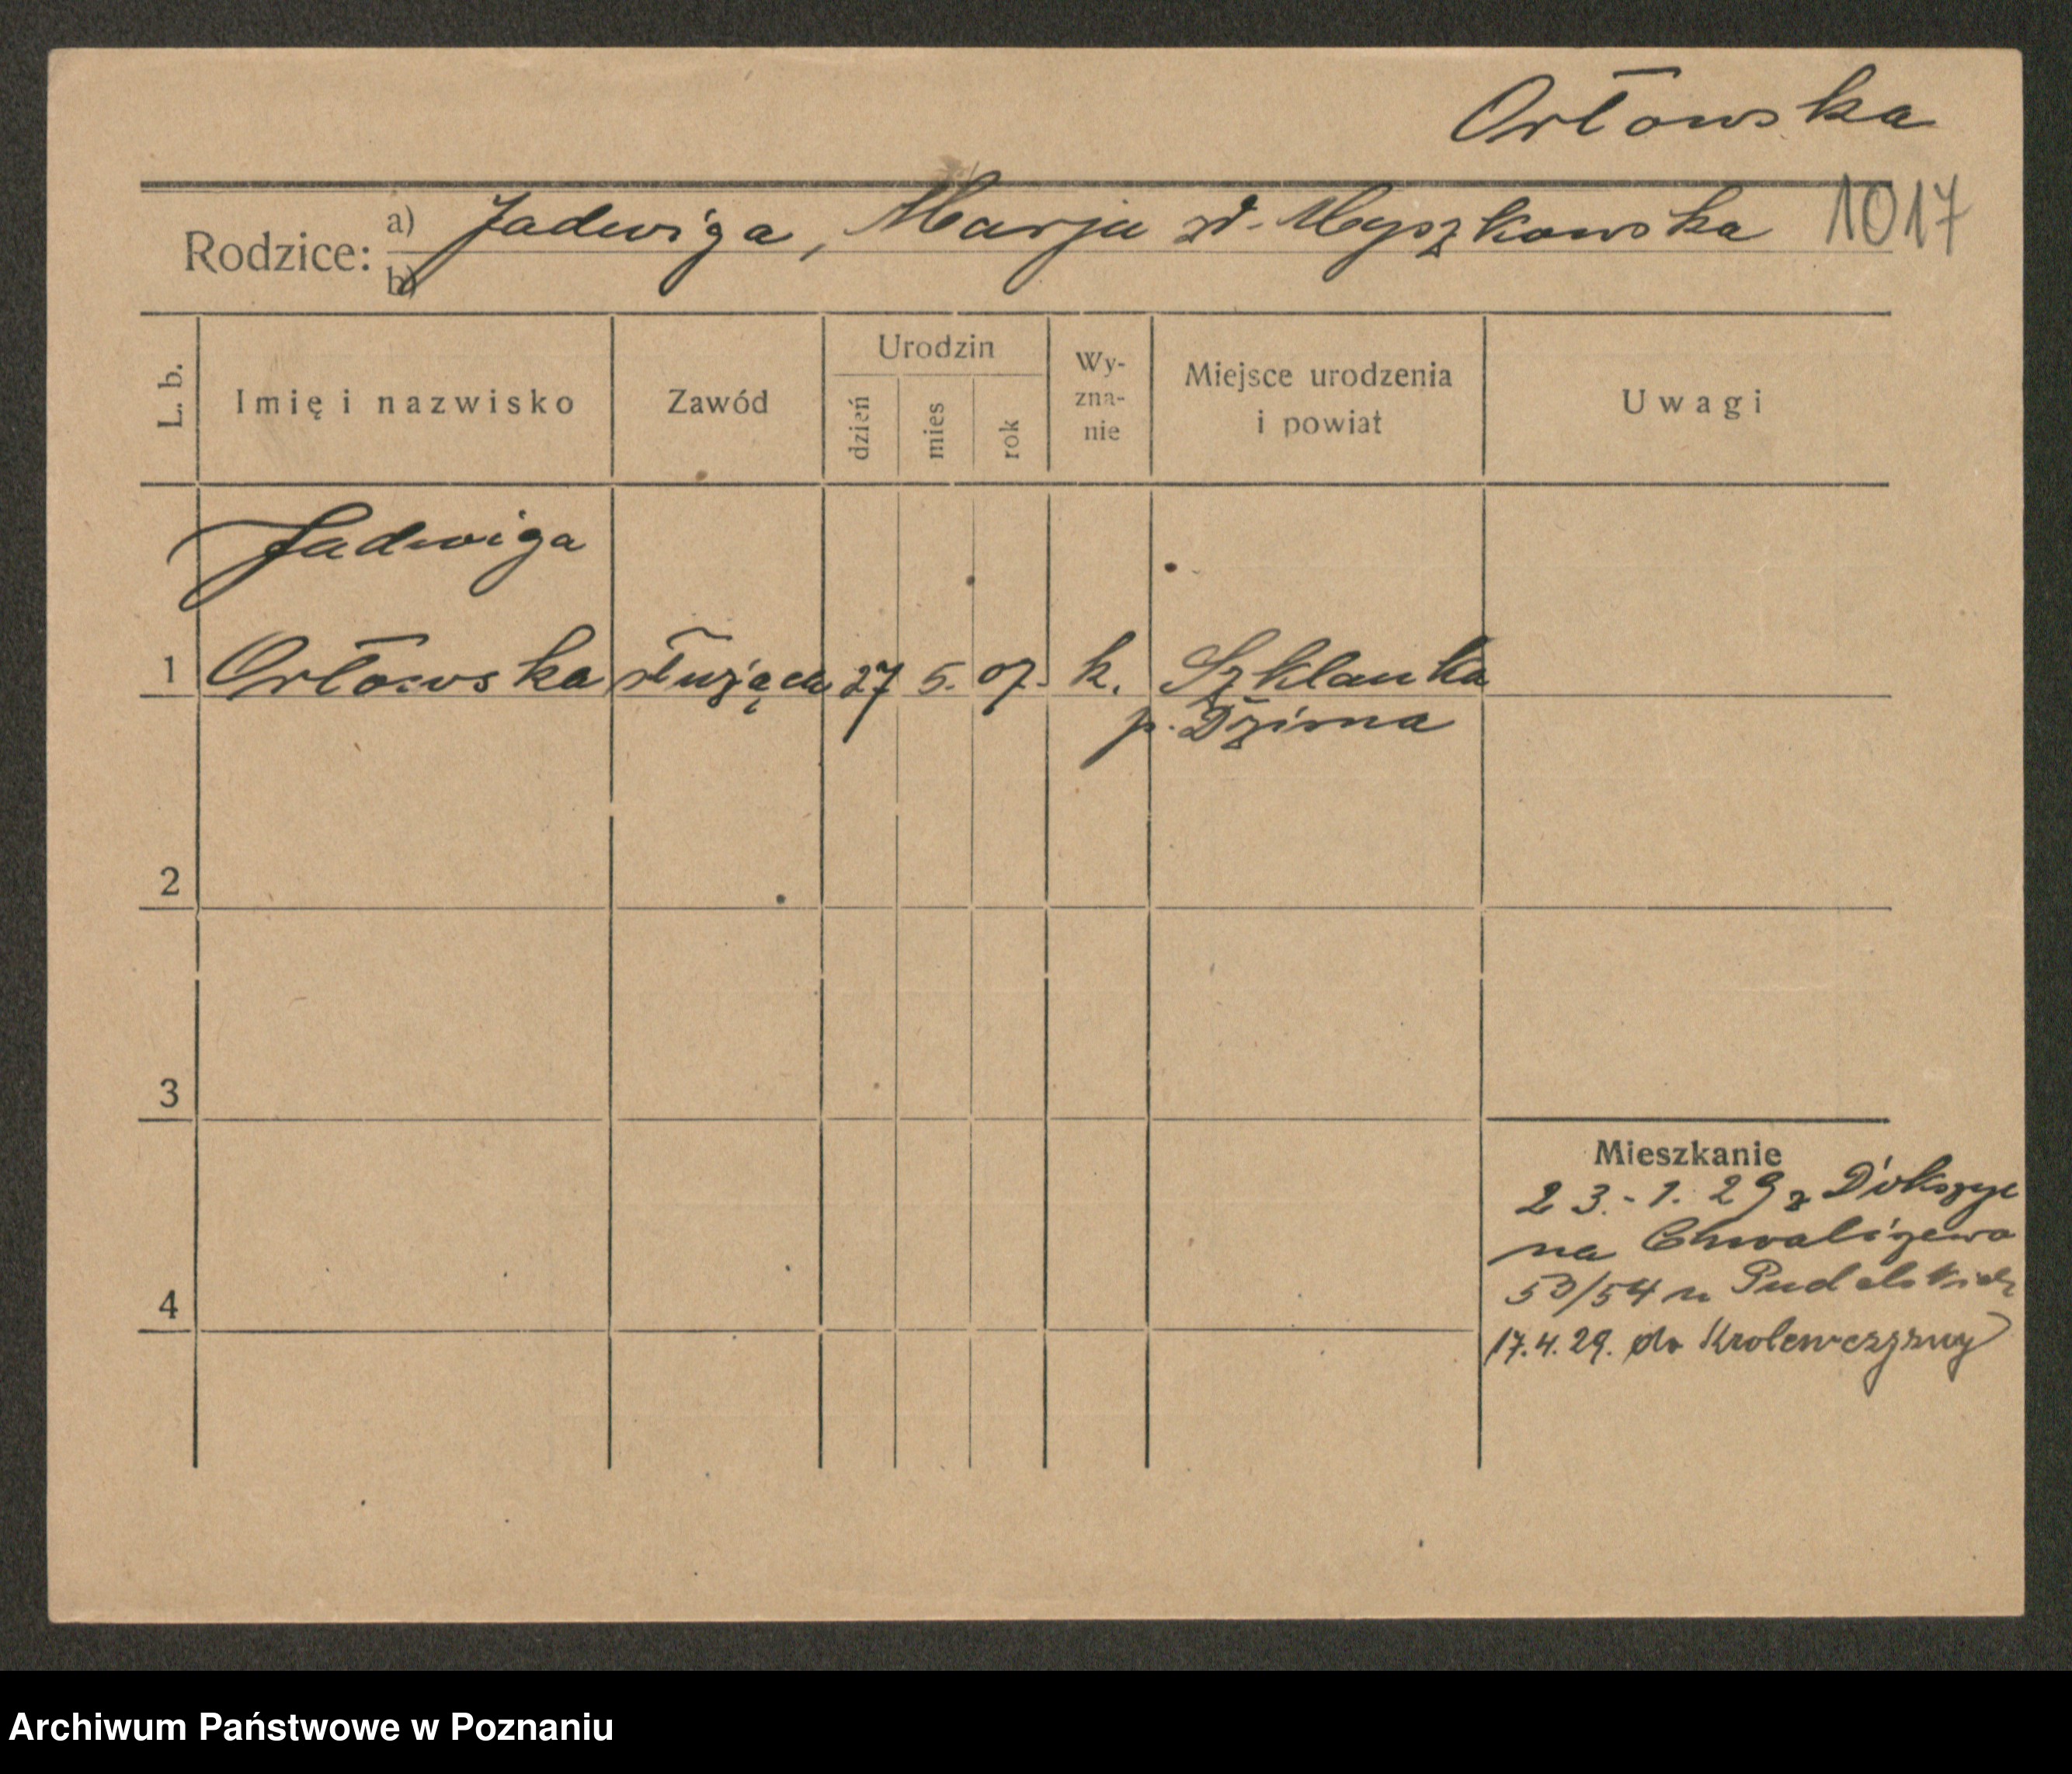 Orłowska
Rodzice: a) Jadwiga, Marja zd. Myszkowska 1017
b)
L. b. Imię i nazwisko Zawód Urodzin dzień mies rok Wy-zna-nie Miejsce urodzenia i powiat Uwagi
Jadwiga
1 Orłowska służąca 27 5. 07. k. Szklanka
p. Dzisna
2
3
Mieszkanie
23.-1. 29 z
na Chwaliszewo
53/54 u
4
17.4.29. do Krolewczyzny
Archiwum Państwowe w Poznaniu